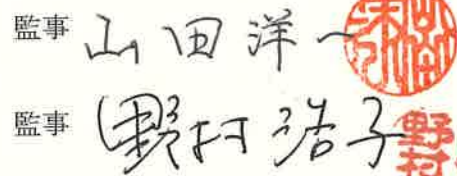 監事 山田洋一
監事 野村浩子 野村